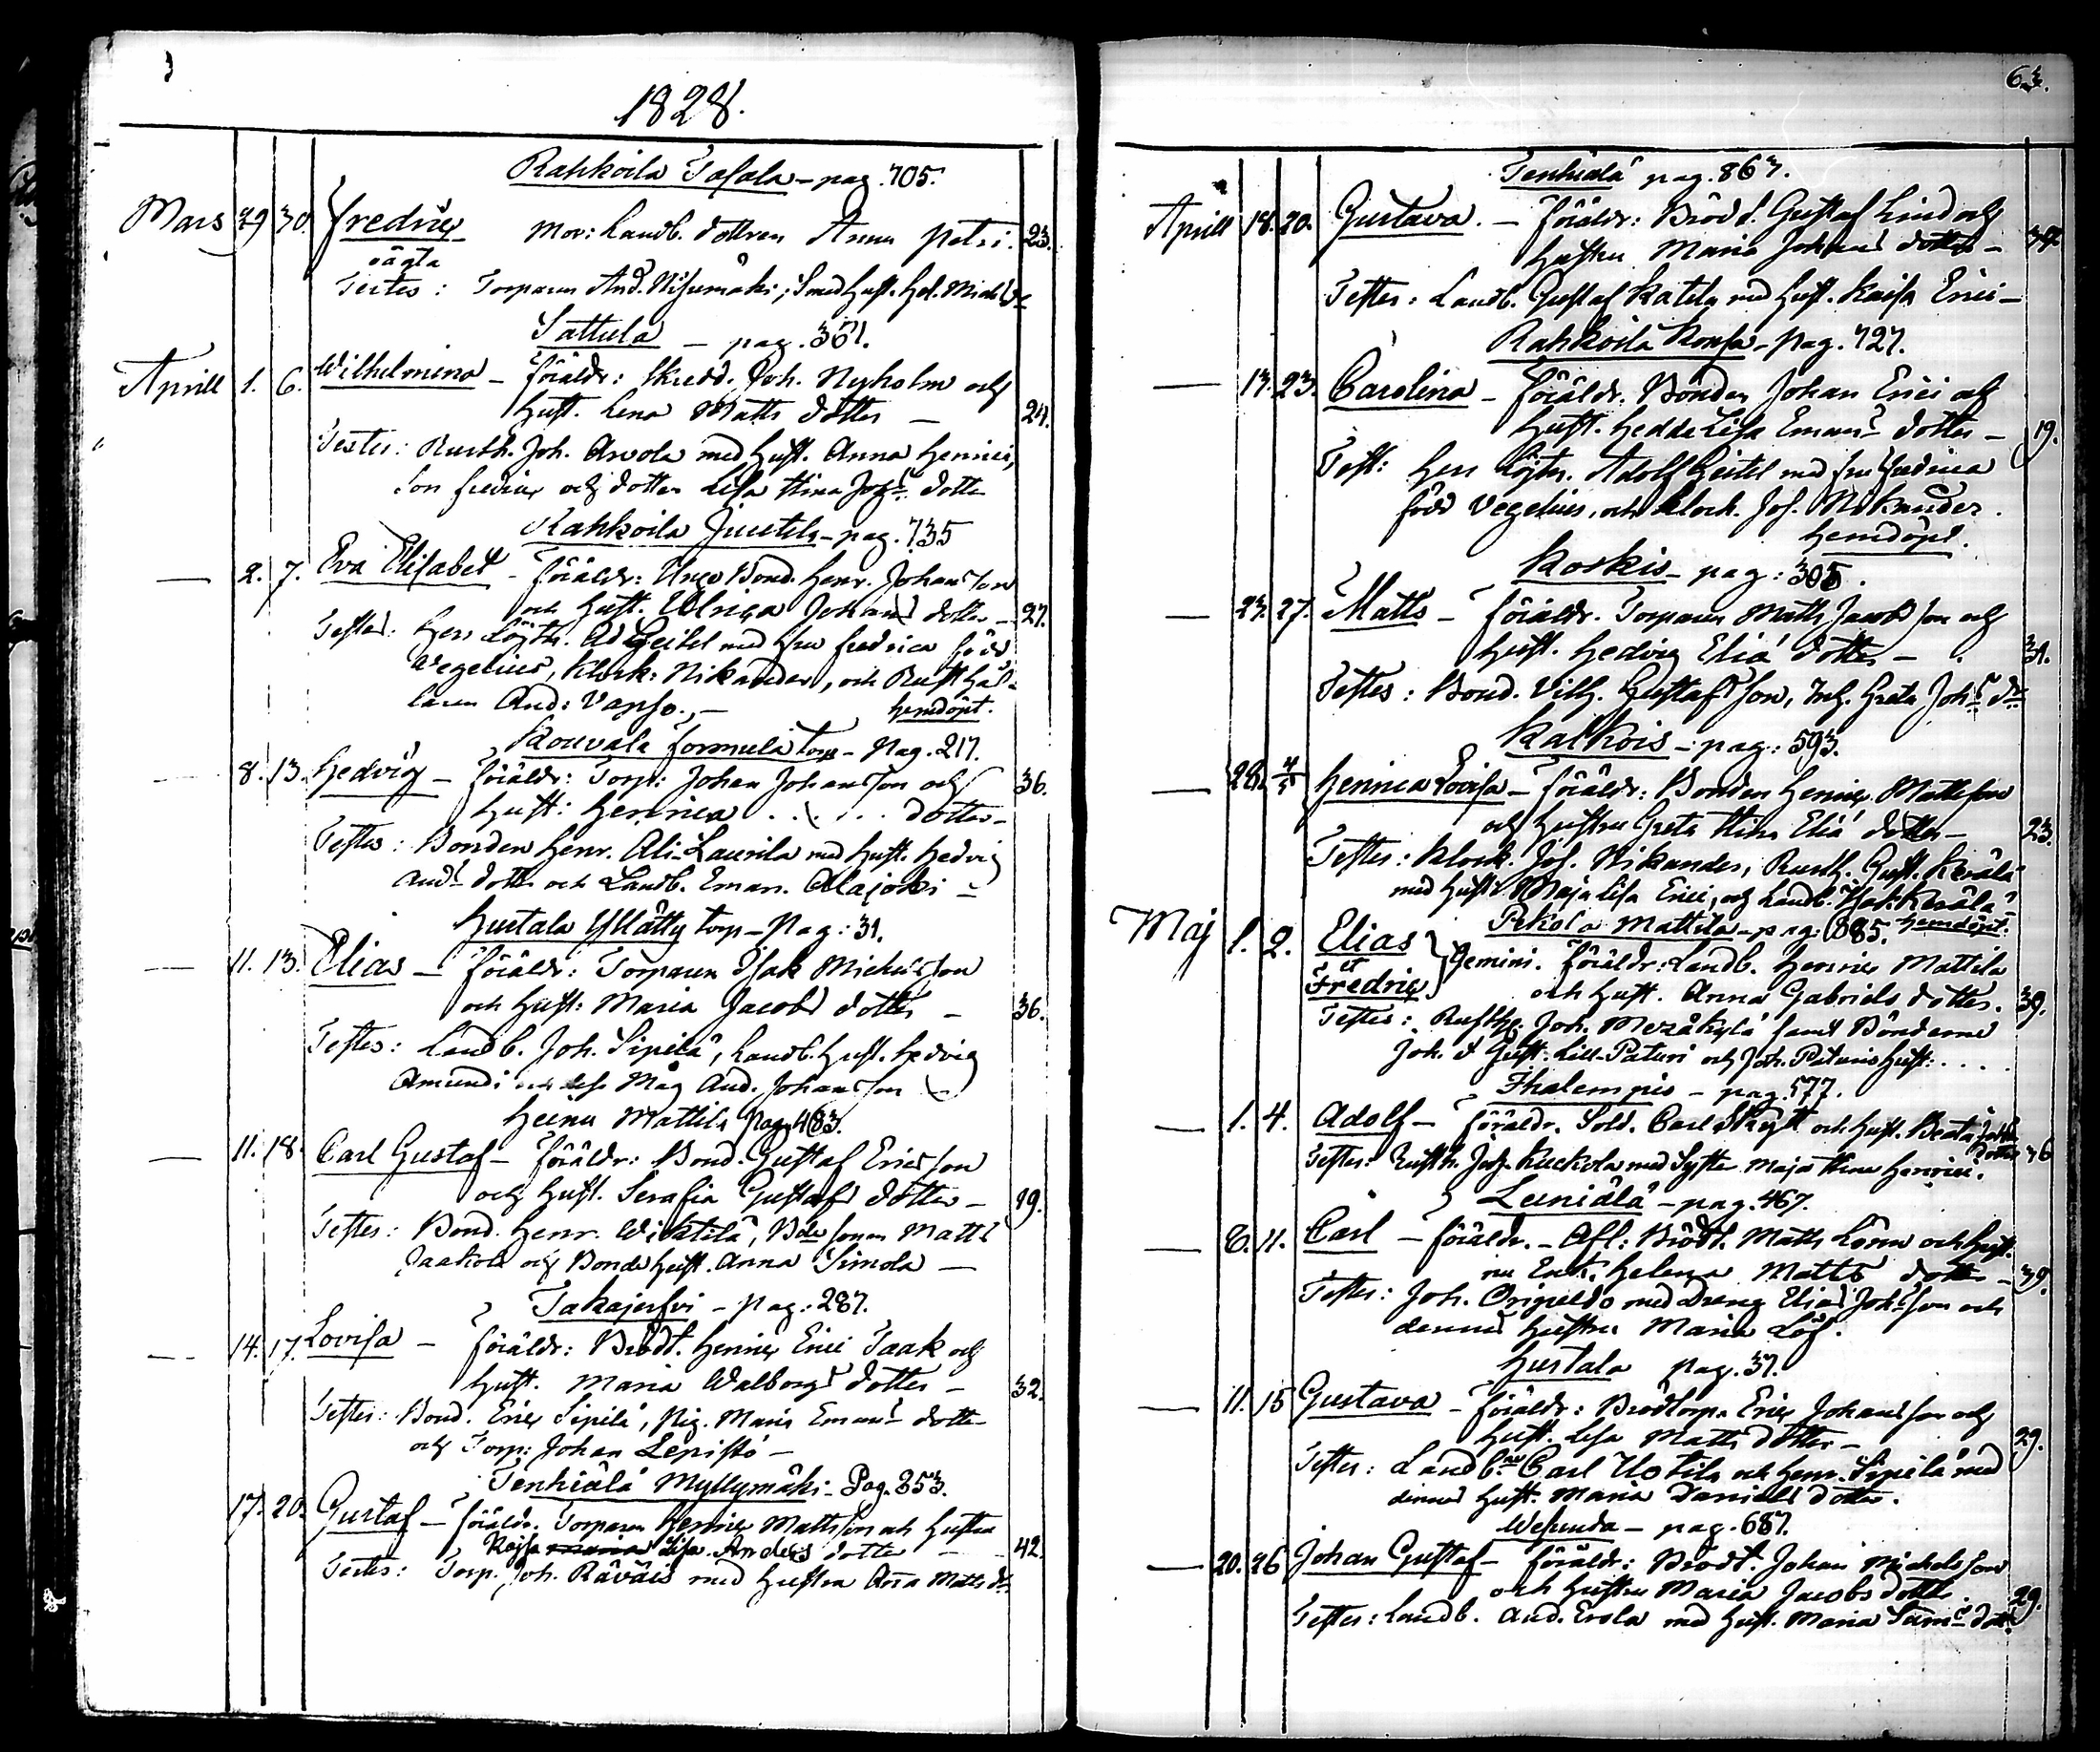 1828.
Rahkoila Tasala - pag. 705.
Mars 29 30. Fredric Mor: Landb. dottren Anna Petri. 23.
oägta
Testes: Torparen And. Nisumäki; Smed Hust. Hel. Mich
Sattula - pag. 361.
Aprill 1. 6. Wilhelmina - Föräldr: Skredd. Joh. Nyholm och
Hust. Lena Matts dotter - 24.
Testes: Rusth. Joh. Arvola med Hust. Anna Henrici,
Son Fredric och dotter Lisa Stina Johs dotter
Rahkoila Juutila - pag. 735
2. 7. Eva Elisabet - Föräldr: Unge Bond. Henr. Johansson
och Hust. Ulrica Johans dotter - 27.
Testes: Herr Löjtn. Ad Geitel med Fru Fredrica född
Vegelius, Klock: Nikander, och Rusthål-
laren And: Vapso., - hemdöpt.
Rouvala Jormula torp - Pag. 217.
8. 13. Hedvig - Föräldr: Torp: Johan Johansson och 36.
Hust: Henrica . . . . . dotter -
Testes: Bonden Henr. Ali-Laurila med Hust. Hedvig
Ands dotter och Landb. Eman. Alajoki -
Hurtala Yllätty torp - Pag: 31.
11. 13. Elias - Föräldr: Torparen Isak Michelsson
och Hust: Maria Jacobs dotter - 36.
Testes: Landb. Joh. Sipilä, Landb. Hust. Hedvig
Amundi Måg And. Johansson
Heinu Mattila Pag. 483.
11. 18. Carl Gustaf - Föräldr: Bond. Gustaf Ericsson
och Hust. Serafia Gustafs dotter - 19.
Testes: Bond. Henr. Wikatilä, Bde sonen Matts
Jaakola och Bonde Hust. Anna Simola -
Takajersvi - pag: 287.
14. 17. Lovisa - Föräldr: Brödt. Henric Erici Taak och
Hust. Maria Walborgs dotter - 32.
Testes: Bond. Eric Sipilä, Pig. Maria Emans dotter
och Torp: Johan Lepistö -
Tenhiälä Myllymäki - Pag. 853.
17. 20. Gustaf - Föräldr. Torparen Henric Mattsson och Hustru
Kajsa Lisa Anders dotter - - 42.
Testes: Torp. Joh. Räväis med Hustru Anna Matts dr
63.
Tenhiälä pag. 867.
Aprill 18. 20. Gustava. - Föräldr: Bröd t. Gustaf Lind och
Hustru Maria Johans dotter - 34
Testes: Landb. Gustaf Katila med Hust. Kaisa Erici -
Rahkoila Konsa - pag. 727.
13. 23. Carolina - Föräldr. Bonden Johan Erici och
Hust. Hedda Lisa Emans dotter - 19.
Test: Herr Löjtn. Adolf Geitel med Fru Fredrica
född Vegelius, och Klock. Jos. Nikander.
hemdöpt.
Koskis - pag: 305.
23. 27. Matts - Föräldr. Torparen Matts Jacobsson och
Hust. Hedvig Eliæ dotter - 31.
Testes: Bond. Vilh. Gustafsson, Inh. Greta Johs dr
Kalkois - pag: 593.
28. 4/5 Henrica Lovisa - Föräldr: Bonden Henric Mattsson
och Hustru Greta Stina Eliæ dotter - 23.
Testes: Klock. Jos. Nikander, Rusth. Gust. Kerälä
med Hustr Maja Lisa Erici, och Landb. Isak Kerälä
hemdöpt.
Pekola Mattila - pag: 885.
Maj 1. 2. Elias et Fredric Gemini. Föräldr: Landb. Henric Mattila
och Hust. Anna Gabriels dotter. 39.
Testes: Rusth. Joh. Meräkylä samt Bönderne
Joh. & Gust. Lill-Paturi och Joh. Paturis Hust: . . . .
Ihalempis - pag. 577.
1. 4. Adolf - Föräldr. Sold. Carl Skytt och Hust. Beata dotter 36
Testes: Rusth. Joh. Kuckola med Syster Maja Stina Henrici.
Leiniälä - pag. 467.
6. 11. Carl - Föräldr. - Afl: Brödt. Matts Lönn och Hust-
ru Enk. Helena Matts dotter - 39.
Testes: Joh. med Dreng Elias Johsson och
dennes Hustru Maria Löf.
Hurtala pag. 37.
11. 15 Gustava - Föräldr: Brödtorp. Eric Johansson och
Hust. Lisa Matts dotter - 29.
Testes: Landb.ne Carl Uotila och Henr. Sipilä med
dennes Hust. Maria Daniels dotter.
Wesunda - pag. 687.
20. 26 Johan Gustaf - Föräldr: Brödt. Johan Michelsson
och Hustru Maria Jacobs dotter 29.
Testes: Landb. And. Erola med Hust. Maria Sims dott.